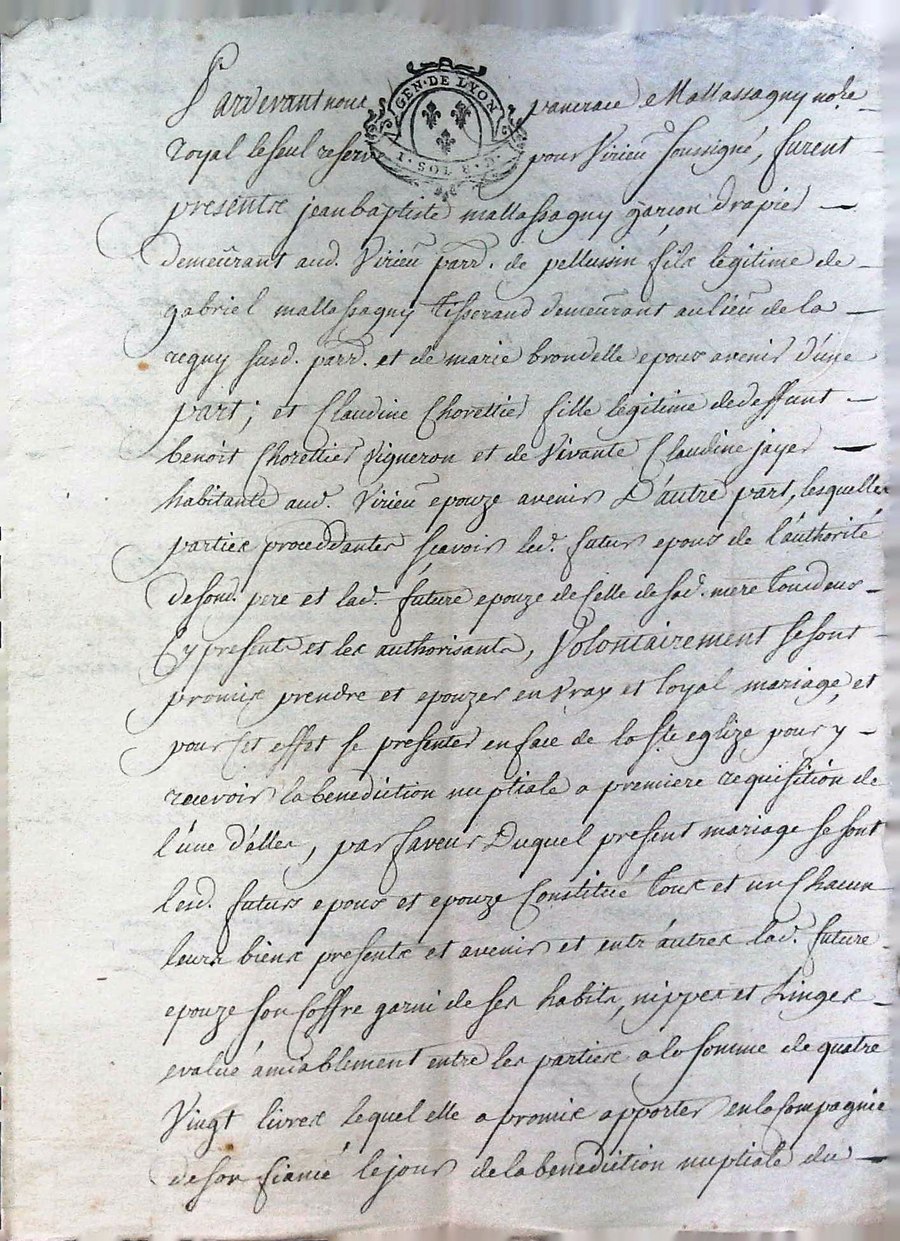 GEN·DE LYON
1·SOL 8·D·
Pardevant nous pancrace Mallassagny no.re
royal le seul reservé pour Virieu soussigné, furent
presents jean baptiste mallassagny garçon drapier
demeurant aud. Virieu parr. de pellussin fils legitime de
gabriel mallassagny tisserand demeurant au lieu de la
regny susd. parr. et de marie brondelle epoux avenir d'une
part; et Claudine Chorettier fille legitime de deffunt
benoit Chorettier Vigneron et de Vivante Claudine jayer
habitante aud. Virieu epouze avenir D'autre part, lesquelles
parties proceddantes scavoir led. futur epoux de l'authorité
de sond. pere et lad. future epouze de Celle de sad. mere tous deux
Cy presents et les authorisants, Volontairement se sont
promis prendre et epouzer en vray et loyal mariage, et
pour Cet effet se presenter en face de la Ste eglize pour y
recevoir la benediction nuptiale a premiere requisition de
l'une d'elles, par faveur Duquel present mariage se sont
lesd. futurs epoux et epouze Constitué tous et un Chacun
leurs biens presents et avenir et entr'autres lad. future
epouze son Coffre garni de ses habits, nippes et linges
evalué amiablement entre les parties a la somme de quatre
Vingt livres lequel elle a promis apporter en la Compagnie
de son fiancé le jour de la benediction nuptiale du